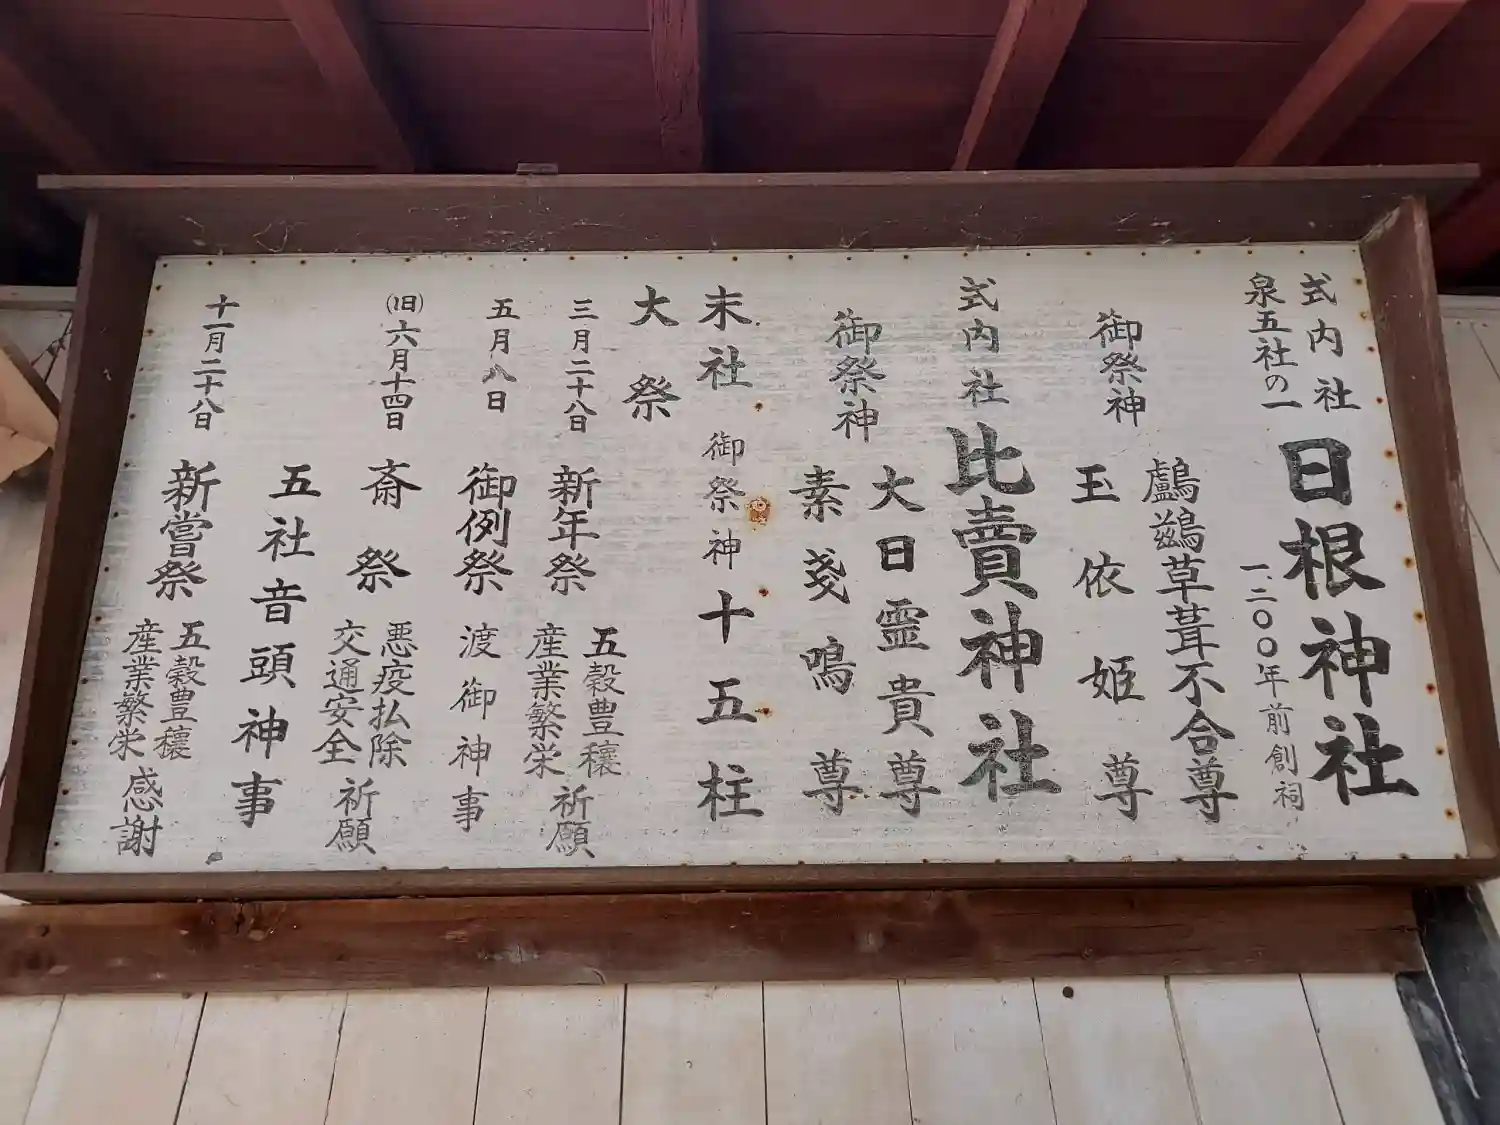 式内社
泉五社の一
日根神社
一、二〇〇年前創祠
御祭神
鸕鷀草葺不合尊
玉依姫尊
式内社
比売神社
御祭神
大日霊貴尊
素戔鳴尊
末社 御祭神 十五柱
大祭
三月二十八日 新年祭 五穀豊穰 産業繁栄 祈願
五月八日 御例祭 渡御神事
(旧)六月十四日 斎祭 悪疫払除 交通安全 祈願
五社音頭神事
十一月二十八日 新嘗祭 五穀豊穰 産業繁栄 感謝